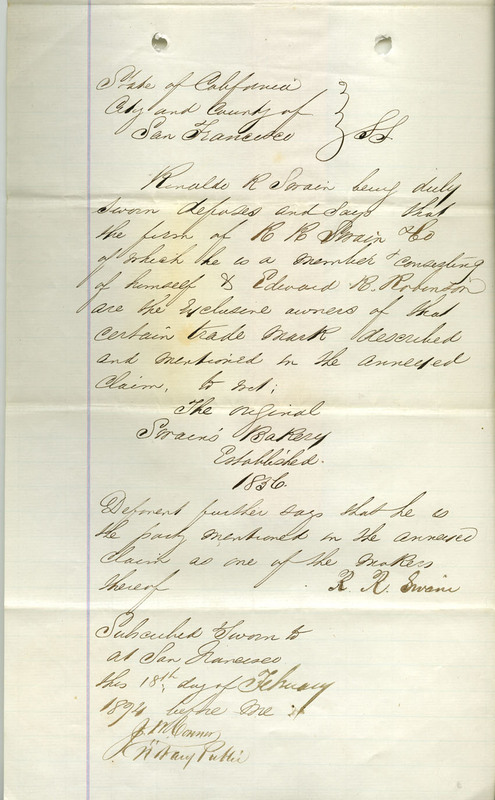 State of California
City and County of
San Francisco } SS.
Rinaldo R Swain being duly
sworn deposes and says that
the firm of R R Swain & Co
of which he is a member & consisting
of himself & Edward R. Robinson
are the exclusive owners of that
certain trade mark described
and mentioned in the annexed
Claim, to wit;
The original
Swain's Bakery
Established.
1856.
Deponent further says that he is
the party mentioned in the annexed
claim as one of the makers
thereof R. R. Swain
Subscribed & Sworn to
at San Francisco
this 18th day of February
189 before me
Notary Public